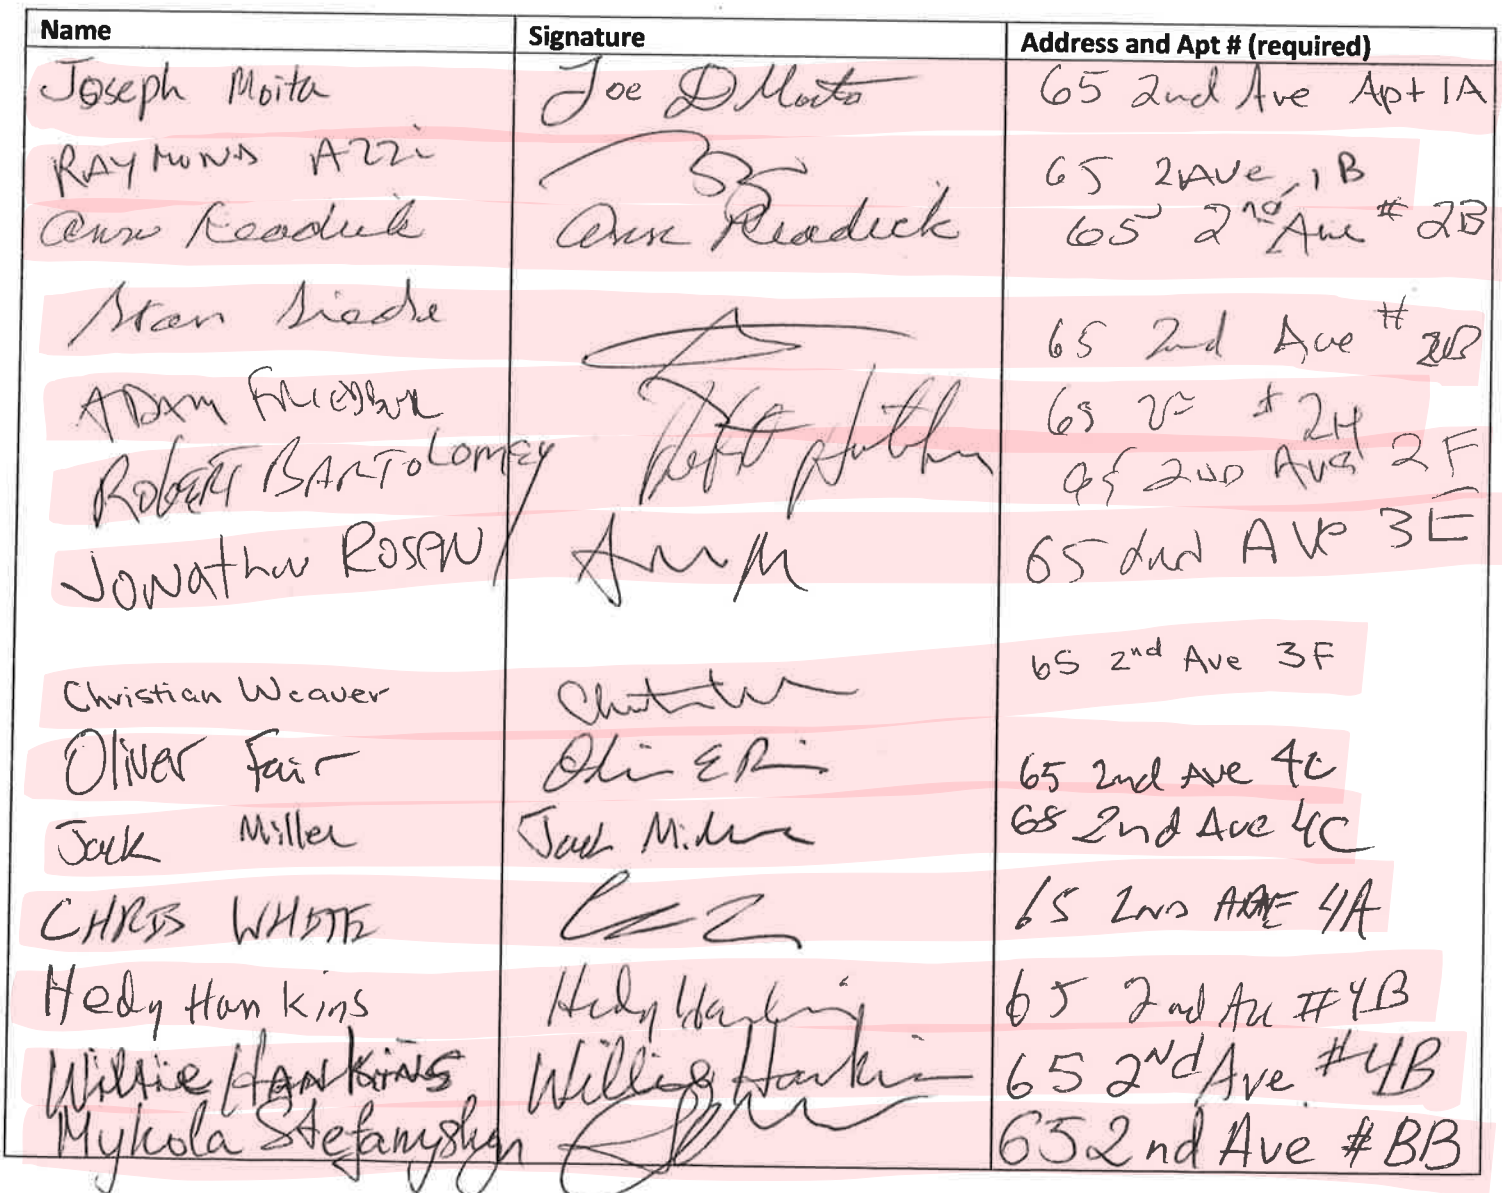 Name Signature Address and Apt # (required)
Joseph Moita Joe D Moita 65 2nd Ave Apt 1A
RAYMOND AZZI 65 2 AVE, 1B
Ann Readick Ann Readick 65 2nd Ave # 2B
Stan 65 2nd Ave # 2B
ADAM 65 # 2H
ROBERT BARTOLOMEY 65 2ND Ave 2F
JONAthan ROSEN 65 2nd AVe 3E
Christian Weaver 65 2nd Ave 3F
Oliver Fair 65 2nd Ave 4C
Jack Miller Jack Miller 65 2nd Ave 4C
CHRIS WHITE 65 2ND AVE 4A
Hedy Hankins Hedy Hankins 65 2nd Ave #4B
Willie HANKiNS Willie Hankins 65 2Nd Ave #4B
Mykola Stefanyshyn 65 2nd Ave # BB